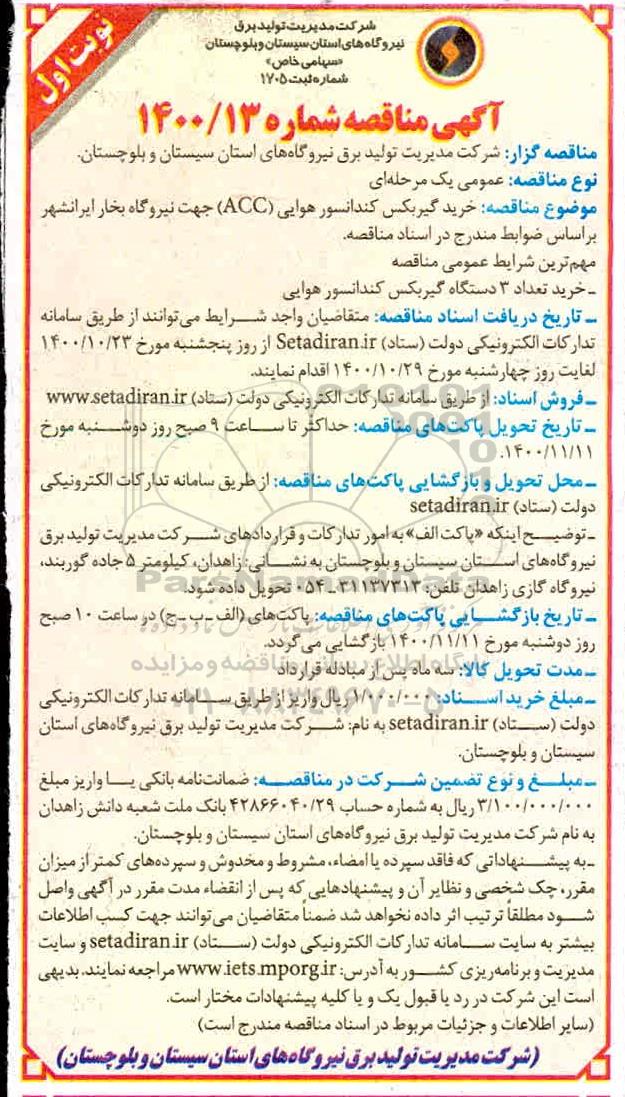 نوبت اول
شرکت مدیریت تولید برق
نیروگاه‌های استان سیستان و بلوچستان
«سهامی خاص»
شماره ثبت ۱۷۰۵
آگهی مناقصه شماره ۱۴۰۰/۱۳
مناقصه گزار: شرکت مدیریت تولید برق نیروگاه‌های استان سیستان و بلوچستان.
نوع مناقصه: عمومی یک مرحله‌ای
موضوع مناقصه: خرید گیربکس کندانسور هوایی (ACC) جهت نیروگاه بخار ایرانشهر
براساس ضوابط مندرج در اسناد مناقصه.
مهم‌ترین شرایط عمومی مناقصه
ـ خرید تعداد ۳ دستگاه گیربکس کندانسور هوایی
ـ تاریخ دریافت اسناد مناقصه: متقاضیان واجد شرایط می‌توانند از طریق سامانه
تدارکات الکترونیکی دولت (ستاد) Setadiran.ir از روز پنجشنبه مورخ ۱۴۰۰/۱۰/۲۳
لغایت روز چهارشنبه مورخ ۱۴۰۰/۱۰/۲۹ اقدام نمایند.
ـ فروش اسناد: از طریق سامانه تدارکات الکترونیکی دولت (ستاد) www.setadiran.ir
ـ تاریخ تحویل پاکت‌های مناقصه: حداکثر تا ساعت ۹ صبح روز دوشنبه مورخ
۱۴۰۰/۱۱/۱۱.
ـ محل تحویل و بازگشایی پاکت‌های مناقصه: از طریق سامانه تدارکات الکترونیکی
دولت (ستاد) setadiran.ir
ـ توضیح اینکه «پاکت الف» به امور تدارکات و قراردادهای شرکت مدیریت تولید برق
نیروگاه‌های استان سیستان و بلوچستان به نشانی: زاهدان، کیلومتر ۵ جاده گوربند،
نیروگاه گازی زاهدان تلفن: ۳۱۱۳۷۳۱۳ـ۰۵۴ تحویل داده شود.
ـ تاریخ بازگشایی پاکت‌های مناقصه: پاکت‌های (الف ـ ب ـ ج) در ساعت ۱۰ صبح
روز دوشنبه مورخ ۱۴۰۰/۱۱/۱۱ بازگشایی می‌گردد.
ـ مدت تحویل کالا: سه ماه پس از مبادله قرارداد
ـ مبلغ خرید اسناد: ۱/۰۰۰/۰۰۰ ریال واریز از طریق سامانه تدارکات الکترونیکی
دولت (ستاد) setadiran.ir به نام: شرکت مدیریت تولید برق نیروگاه‌های استان
سیستان و بلوچستان.
ـ مبلغ و نوع تضمین شرکت در مناقصه: ضمانت‌نامه بانکی یا واریز مبلغ
۳/۱۰۰/۰۰۰/۰۰۰ ریال به شماره حساب ۴۲۸۶۶۰۴۰/۲۹ بانک ملت شعبه دانش زاهدان
به نام شرکت مدیریت تولید برق نیروگاه‌های استان سیستان و بلوچستان.
ـ به پیشنهاداتی که فاقد سپرده یا امضاء، مشروط و مخدوش و سپرده‌های کمتر از میزان
مقرر، چک شخصی و نظایر آن و پیشنهادهایی که پس از انقضاء مدت مقرر در آگهی واصل
شود مطلقاً ترتیب اثر داده نخواهد شد ضمناً متقاضیان می‌توانند جهت کسب اطلاعات
بیشتر به سایت سامانه تدارکات الکترونیکی دولت (ستاد) setadiran.ir و سایت
مدیریت و برنامه‌ریزی کشور به آدرس: www.iets.mporg.ir مراجعه نمایند. بدیهی
است این شرکت در رد یا قبول یک و یا کلیه پیشنهادات مختار است.
(سایر اطلاعات و جزئیات مربوط در اسناد مناقصه مندرج است)
(شرکت مدیریت تولید برق نیروگاه‌های استان سیستان و بلوچستان)